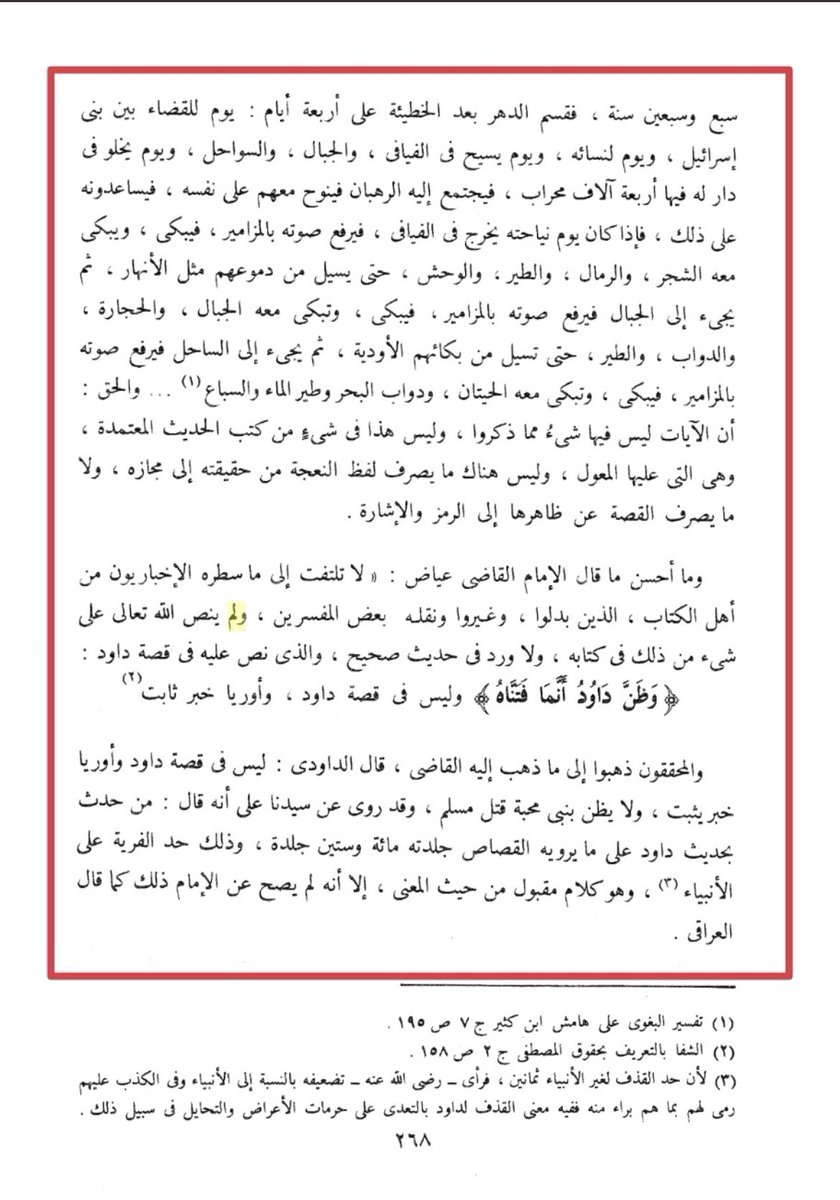 سبع وسبعين سنة ، فقسم الدهر بعد الخطيئة على أربعة أيام : يوم للقضاء بين بنى
إسرائيل ، ويوم لنسائه ، ويوم يسيح فى الفيافى ، والجبال ، والسواحل ، ويوم يخلو فى
دار له فيها أربعة آلاف محراب ، فيجتمع إليه الرهبان فينوح معهم على نفسه ، فيساعدونه
على ذلك ، فإذا كان يوم نياحته يخرج فى الفيافى ، فيرفع صوته بالمزامير ، فيبكى ، ويبكى
معه الشجر ، والرمال ، والطير ، والوحش ، حتى يسيل من دموعهم مثل الأنهار ، ثم
يجىء إلى الجبال فيرفع صوته بالمزامير ، فيبكى ، وتبكى معه الجبال ، والحجارة ،
والدواب ، والطير ، حتى تسيل من بكائهم الأودية ، ثم يجىء إلى الساحل فيرفع صوته
بالمزامير ، فيبكى ، وتبكى معه الحيتان ، ودواب البحر وطير الماء والسباع (١) ... والحق :
أن الآيات ليس فيها شىءُ مما ذكروا ، وليس هذا فى شىءٍ من كتب الحديث المعتمدة ،
وهى التى عليها المعول ، وليس هناك ما يصرف لفظ النعجة من حقيقته إلى مجازه ، ولا
ما يصرف القصة عن ظاهرها إلى الرمز والإشارة .
وما أحسن ما قال الإمام القاضى عياض : « لا تلتفت إلى ما سطره الإخباريون من
أهل الكتاب ، الذين بدلوا ، وغيروا ونقله بعض المفسرين ، ولم ينص الله تعالى على
شىء من ذلك فى كتابه ، ولا ورد فى حديث صحيح ، والذى نص عليه فى قصة داود :
﴿ وَظَنَّ دَاوُدُ أَنَّمَا فَتَنَّاهُ ﴾ وليس فى قصة داود ، وأوريا خبر ثابت (٢)
والمحققون ذهبوا إلى ما ذهب إليه القاضى ، قال الداودى : ليس فى قصة داود وأوريا
خبر يثبت ، ولا يظن بنبى محبة قتل مسلم ، وقد روى عن سيدنا على أنه قال : من حدث
بحديث داود على ما يرويه القصاص جلدته مائة وستين جلدة ، وذلك حد الفرية على
الأنبياء (٣) ، وهو كلام مقبول من حيث المعنى ، إلا أنه لم يصح عن الإمام ذلك كما قال
العراقى .
(١) تفسير البغوى على هامش ابن كثير ج ٧ ص ١٩٥ .
(٢) الشفا بالتعريف بحقوق المصطفى ج ٢ ص ١٥٨ .
(٣) لأن حد القذف لغير الأنبياء ثمانين ، فرأى ــ رضى الله عنه ــ تضعيفه بالنسبة إلى الأنبياء وفى الكذب عليهم
رمى لهم بما هم براء منه ففيه معنى القذف لداود بالتعدى على حرمات الأعراض والتحايل فى سبيل ذلك .
٢٦٨